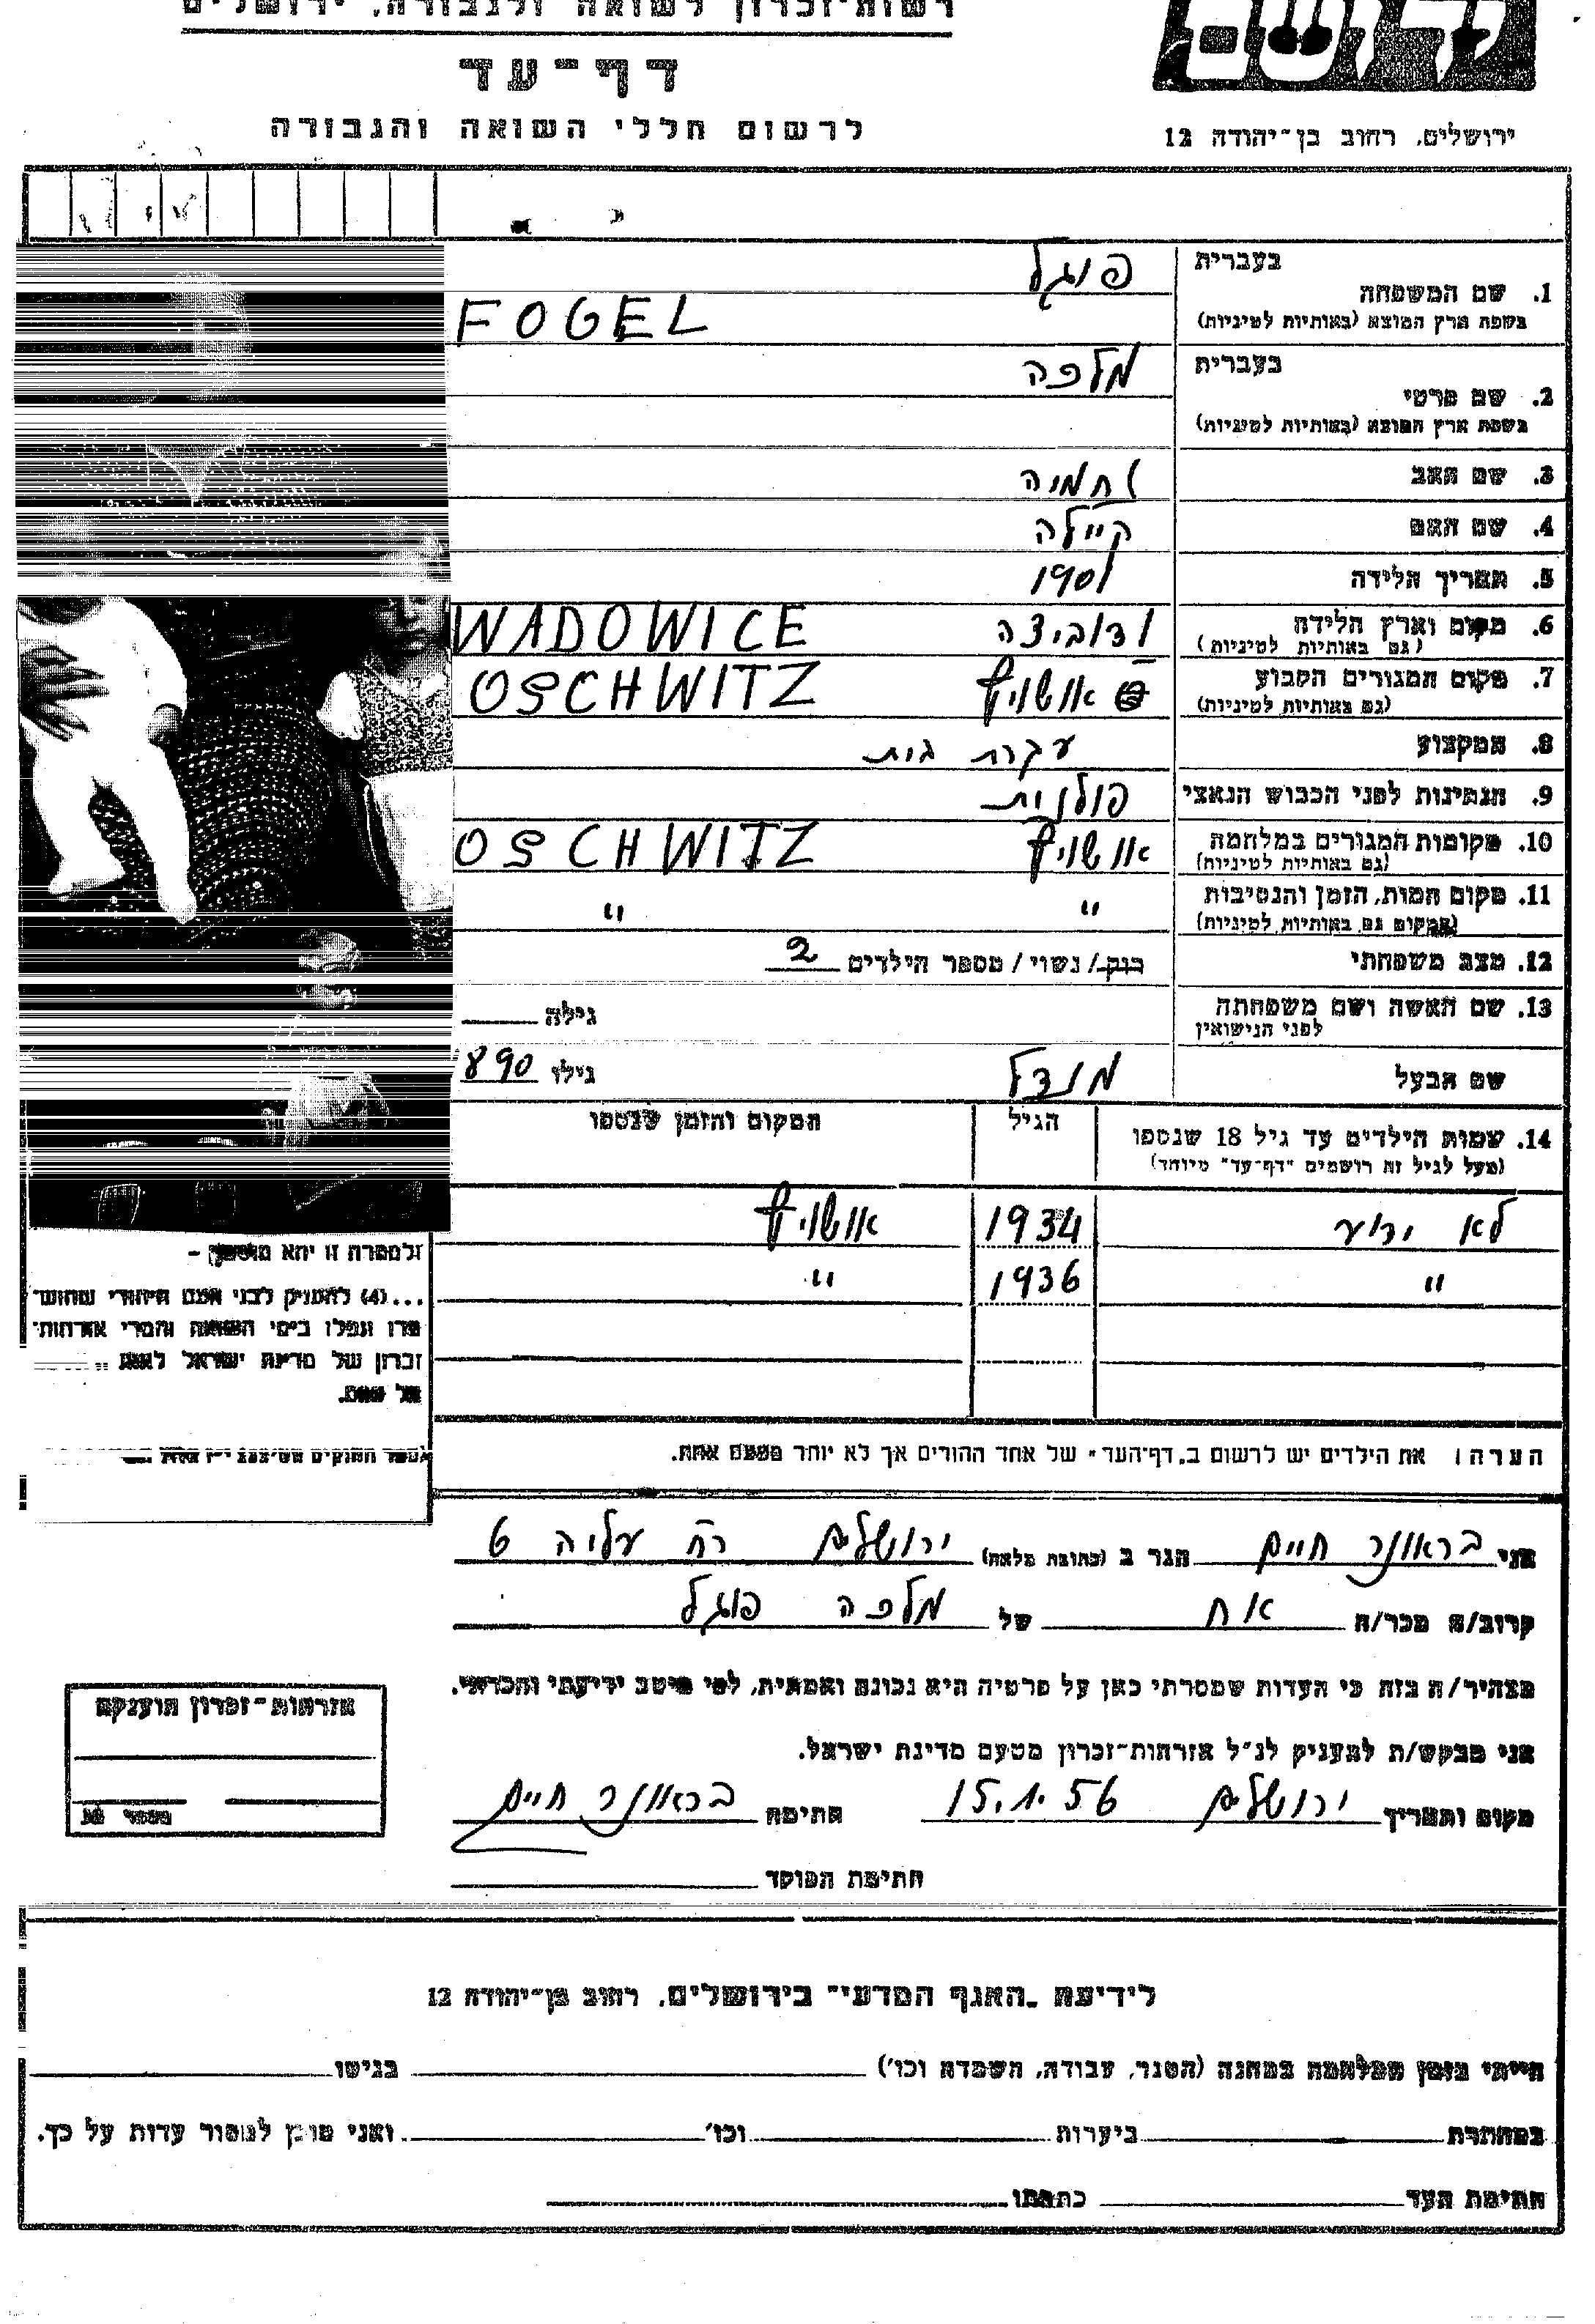 רשות-זכרון לשואה ולגבורה, ירושלים
דף-עד
לרשום חללי השואה והגבורה
ירושלים, רחוב בן-יהודה 12
בעברית
פוגל
1. שם המשפחה
בשפת ארץ המוצא (באותיות לטיניות)
FOGEL
בעברית
מלכה
2. שם פרטי
בשפת ארץ המוצא (באותיות לטיניות)
3. שם האב
נחמיה
4. שם האם
קיילה
5. תאריך הלידה
1901
6. מקום וארץ הלידה
(גם באותיות לטיניות)
ודוביצה WADOWICE
7. מקום המגורים הקבוע
(גם באותיות לטיניות)
אושויץ OSCHWITZ
8. המקצוע
עקרת בית
9. הנתינות לפני הכבוש הנאצי
פולנית
10. מקומות המגורים במלחמה
(גם באותיות לטיניות)
אושויץ OSCHWITZ
11. מקום המות, הזמן והנסיבות
(המקום גם באותיות לטיניות)
" "
12. מצב משפחתי
רווק / נשוי / מספר הילדים 2
13. שם האשה ושם משפחתה
לפני הנישואין
גילה
שם הבעל
מנדל
גילו 890
14. שמות הילדים עד גיל 18 שנספו
(מעל לגיל זה רושמים "דף-עד" מיוחד)
הגיל
המקום והזמן שנספו
לא ידוע 1934 אושויץ
" 1936 "
ולמטרה זו יהא מוסמך -
...(4) להעניק לבני העם היהודי שהושמ־
דו ונפלו בימי השואה והמרי אזרחות־
זכרון של מדינת ישראל לאות
אל עמם.
הערה: את הילדים יש לרשום ב"דף-העד" של אחד ההורים אך לא יותר מפעם אחת.
אני בראונר חיים הגר ב (כתובת מלאה) ירושלים רח' עליה 6
קרוב/ה מכר/ה אח של מלכה פוגל
מצהיר/ה בזה כי העדות שמסרתי כאן על פרטיה היא נכונה ואמתית, לפי מיטב ידיעתי והכרתי.
אני מבקש/ת להעניק לנ"ל אזרחות-זכרון מטעם מדינת ישראל.
מקום ותאריך ירושלים 15.1.56 חתימה בראונר חיים
חתימת הפוקד
אזרחות-זכרון הוענקה
לידיעת "האגף המדעי" בירושלים, רחוב בן-יהודה 12
הייתי בזמן המלחמה במחנה (הסגר, עבודה, השמדה וכו') בגיטו
במחתרת ביערות וכו' ואני מוכן למסור עדות על כך.
חתימת העד כתבתו